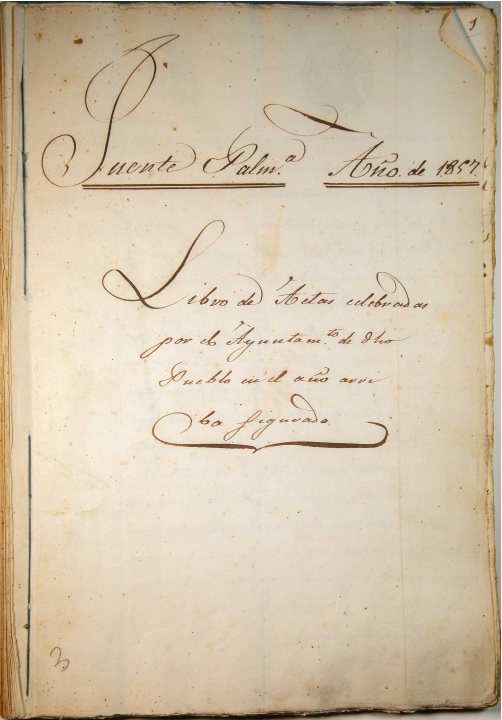 1
Fuente Palm.ª Año. de 1857.
Libro de Actas celebradas
por el Ayuntam.to de dho
Pueblo en el año arri
ba figurado.
3